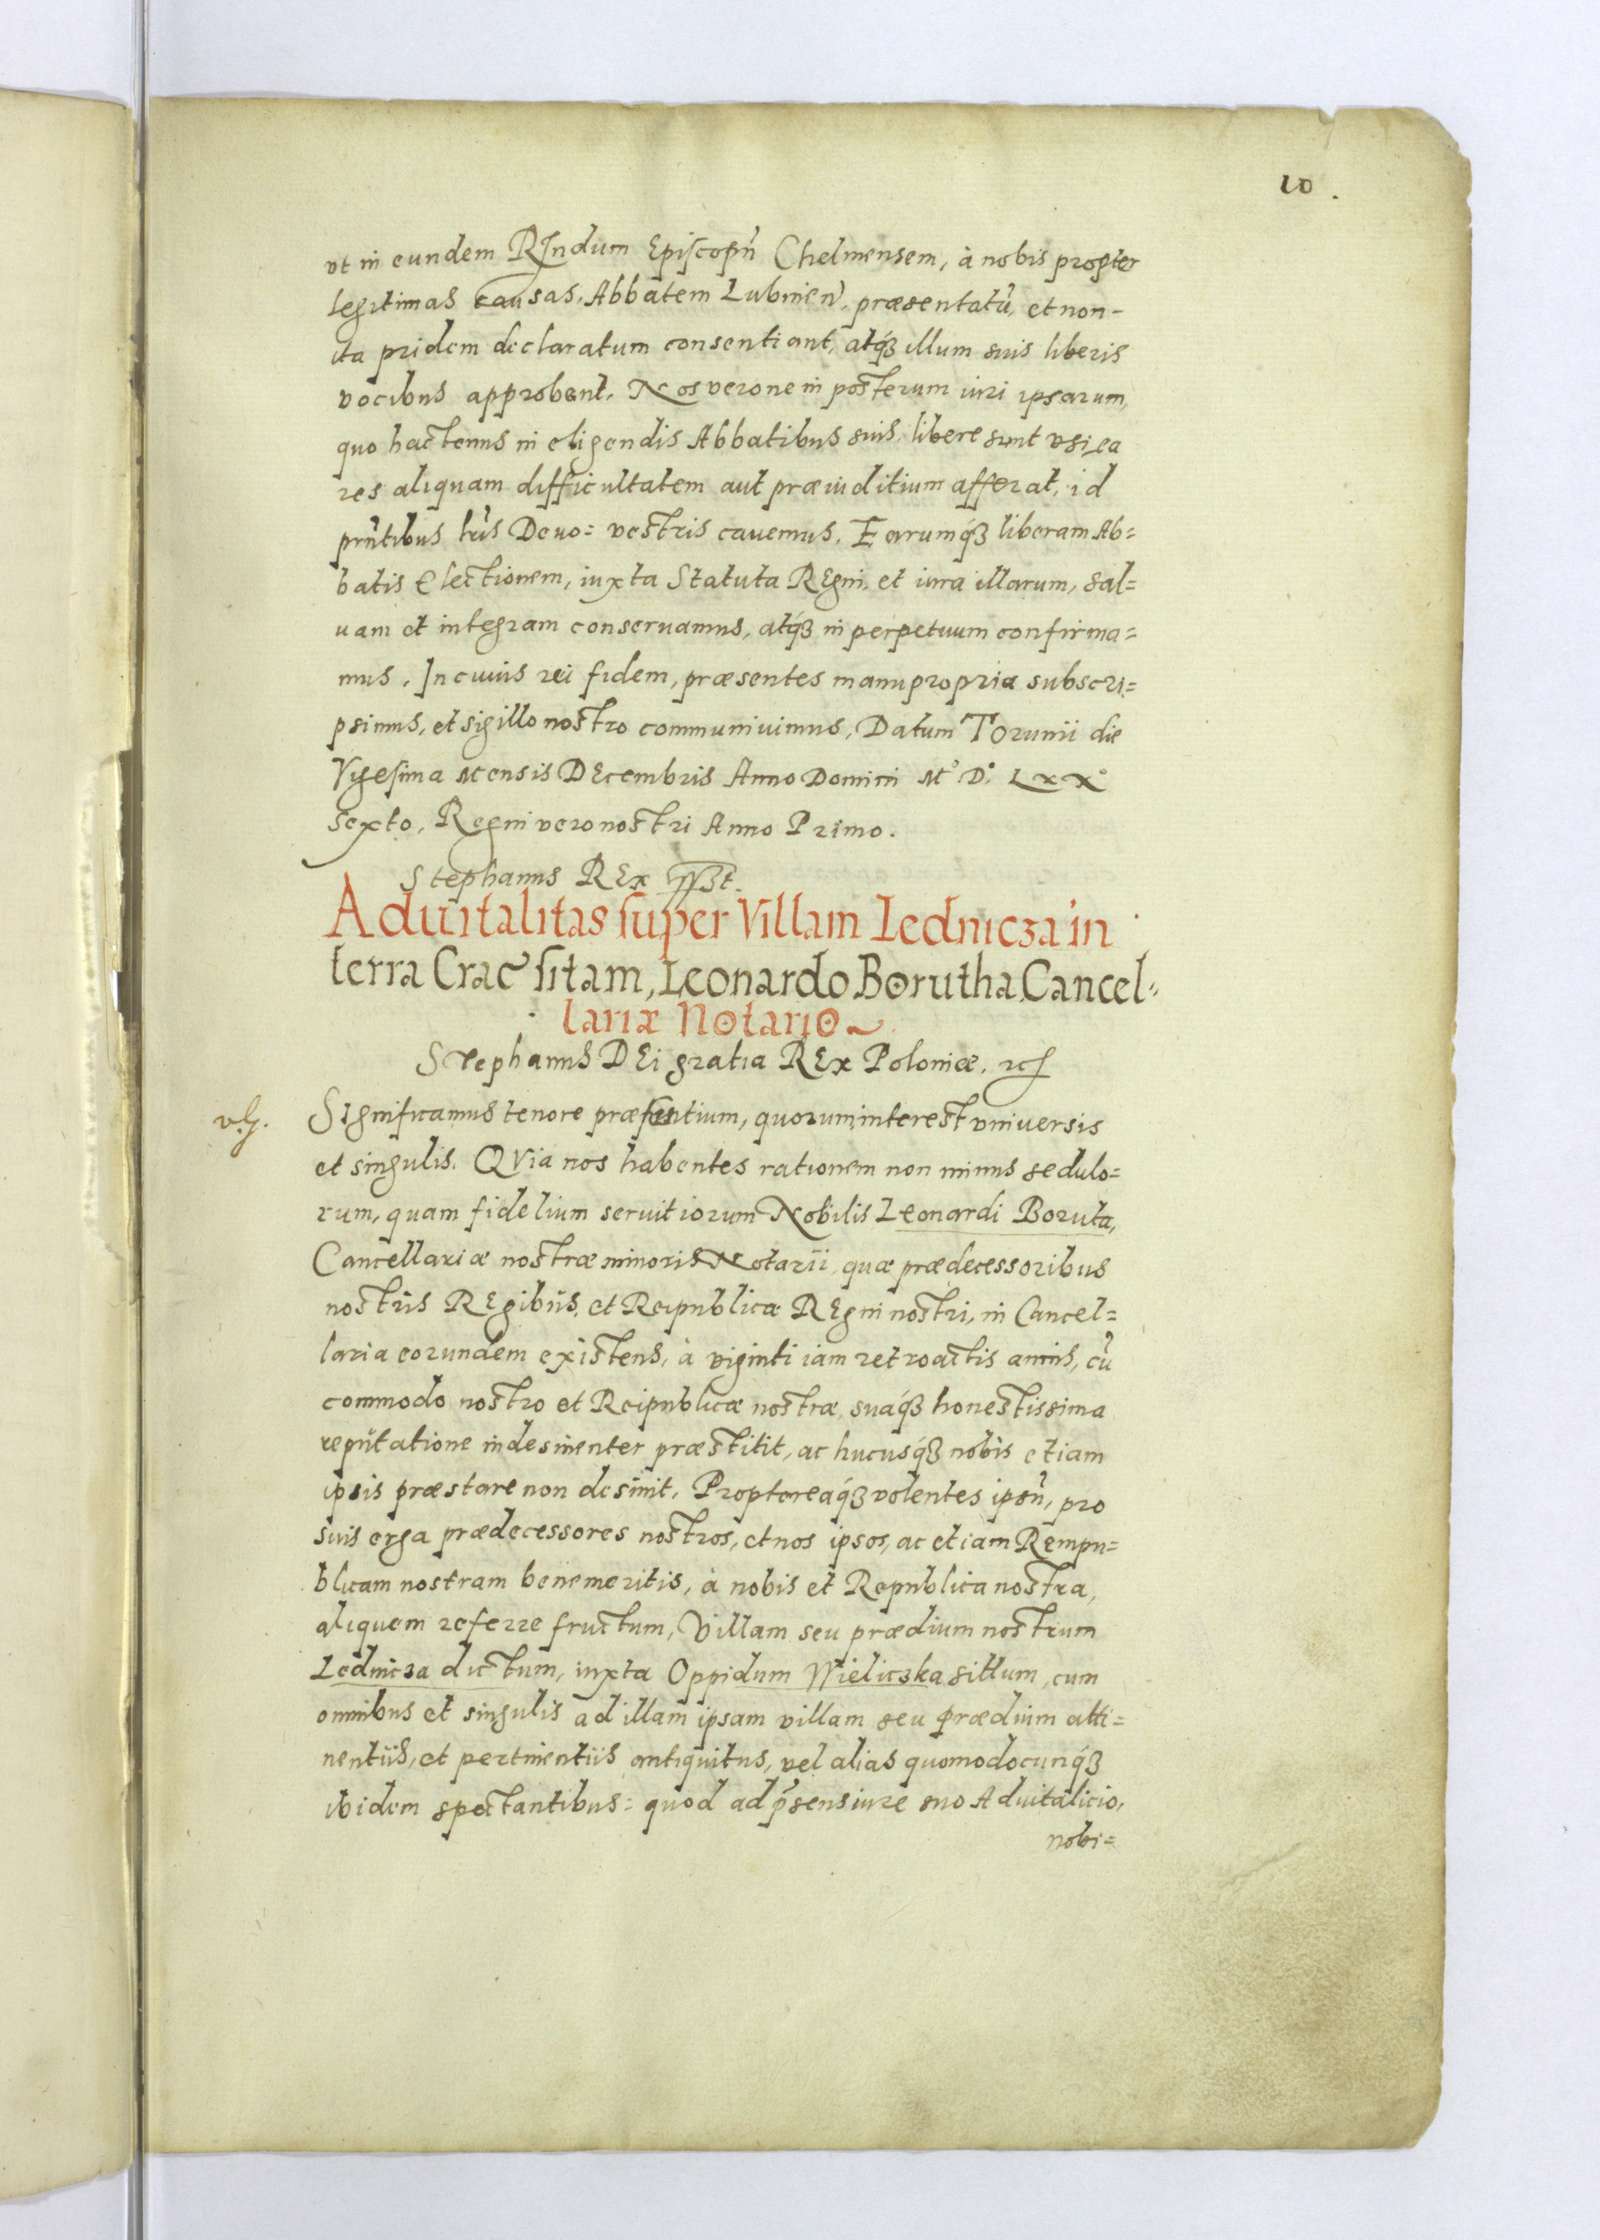 10.
vt in eundem RIndum Episcopũ Chelmensem, à nobis propter
legitimas causas, Abbatem Lubinen̄. præsentatũ, et non-
ita pridem declaratum consentiant, atq́ꝫ illum suis liberis
vocibus approbent. Nos vero ne in posterum iuri ipsarum,
quo hactenus in eligendis Abbatibus suis, libere sunt vsi, ea
res aliquam difficultatem aut præiuditium afferat, id
pñtibus lr̃is Deuo= vestris cauemus. Earumq́ꝫ liberam Ab=
batis Electionem, iuxta Statuta REgni, et iura illarum, sal=
uam et integram conseruamus, atq́ꝫ in perpetuum confirma=
mus. In cuius rei fidem, præsentes manu propria subscri=
psimus, et sigillo nostro communiuimus, Datum Torunii die
Vigesima Mensis DEcembris Anno Domini M° D° LXX°
Sexto, Regni vero nostri Anno Primo.
Stephanus REx
Aduitalitas super Villam Lednicza in
terra Crac̃ sitam, Leonardo Borutha Cancel=
lariæ Notario
Stephanus DEi gratia REx Poloniæ. ꝛc
Significamus tenore præsentium, quorum interest vniuersis
et singulis. QVia nos habentes rationem non minus sedulo=
rum, quam fidelium seruitiorum Nobilis Leonardi Boruta,
Cancellariæ nostræ minoris Notarii, quæ prædecessoribus
nostris REgibus, et Reipublicæ REgni nostri, in Cancel=
laria eorundem existens, à viginti iam retroactis annis, cũ
commodo nostro et Reipublicæ nostræ, suaq́ꝫ honestissima
reputatione indesinenter præstitit, ac hucusq́ꝫ nobis etiam
ipsis præstare non desinit. Proptereaq́ꝫ volentes ipsũ, pro
suis erga prædecessores nostros, et nos ipsos, ac etiam Rempu=
blicam nostram benemeritis, à nobis et Republica nostra,
aliquem referre fructum, Villam seu prædium nostrum
Lednicza dictum, iuxta Oppidum Wieliczka situm, cum
omnibus et singulis ad illam ipsam villam seu prædium atti=
nentiis, et pertinentiis antiquitus, vel alias quomodocunq́ꝫ
ibidem spectantibus: quod ad p̃sens iure suo Aduitalicio,
nobi=